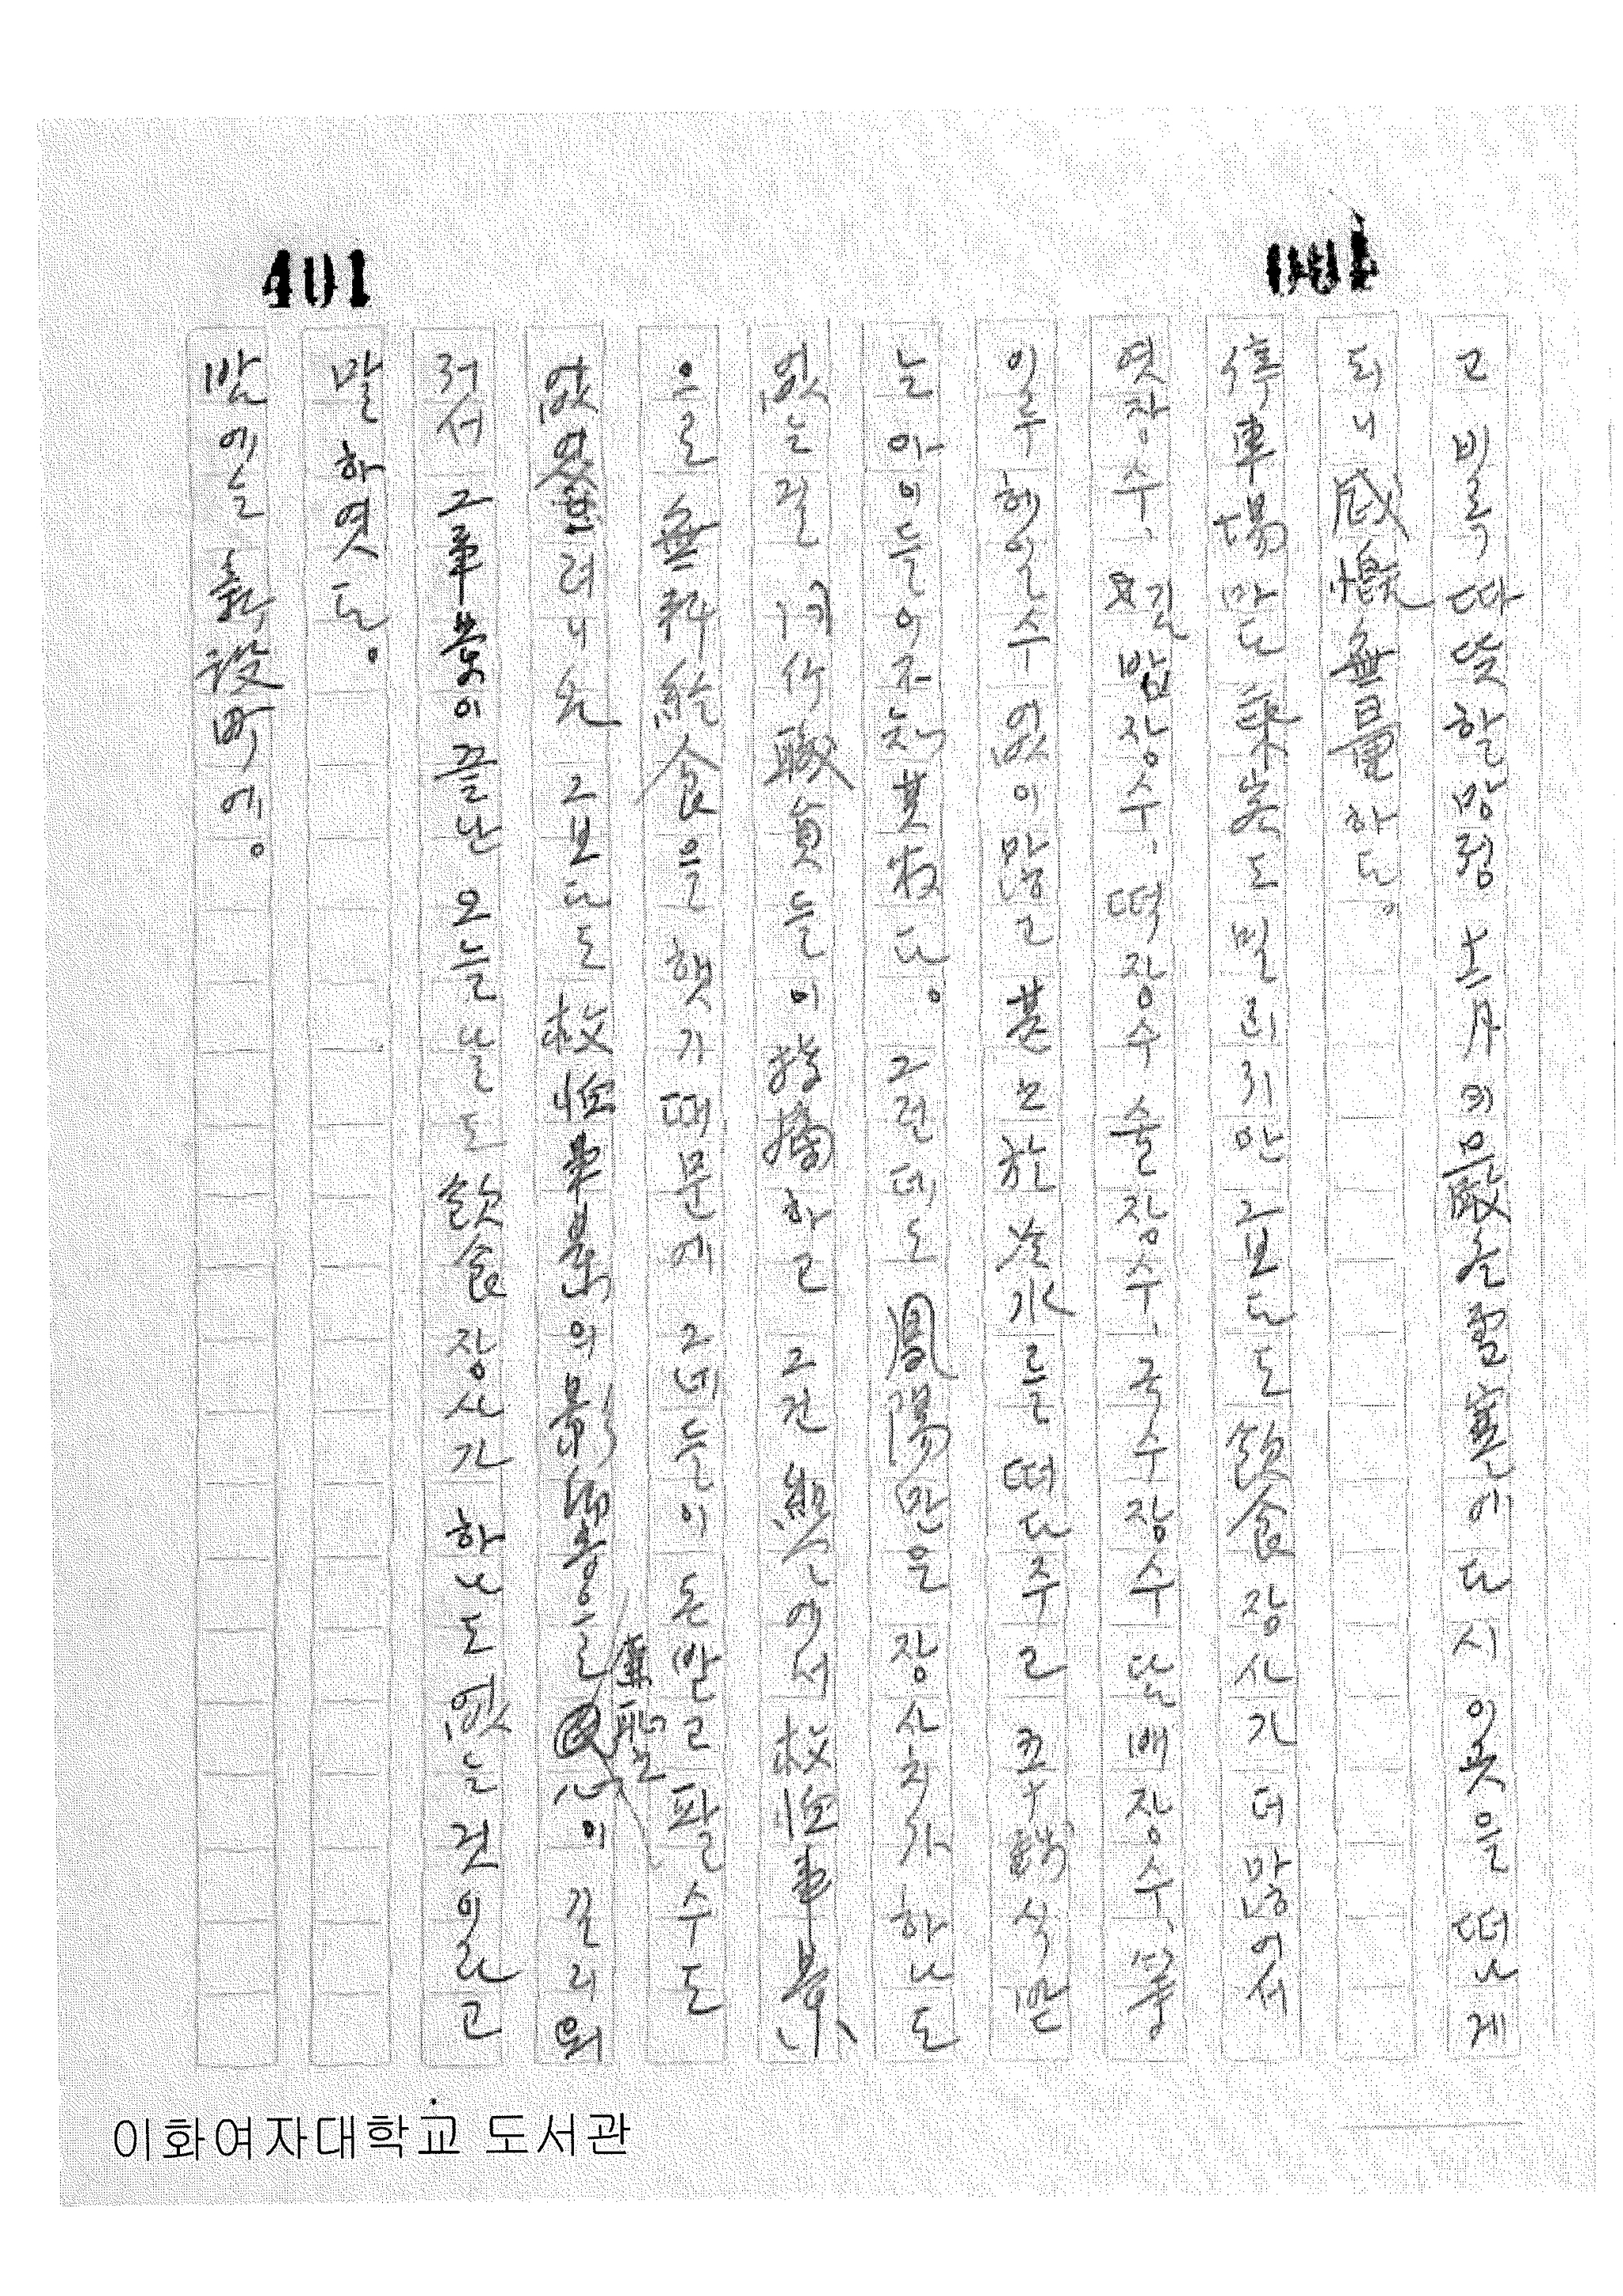 401
고 비록 따뜻할망정 十二月의 嚴冬雪寒에 다시 이곳을 떠나게
되니 感慨無量하다。
停車場마다 乘客도 밀리지만 그보다도 飮食장사가 더 많어서
엿장수、 김밥장수、 떡장수 술장수、 국수장수 담배장수、
일수 헤일 수 없이 많고 甚至於 冷水를 떠다주고 푼錢식 받
는 아이들이 不知其數다。 그런데도 鳳陽만은 장사치가 하나도
없는 걸 同行職員들이 指摘하고 그건 縣에서 救恤事業
으로 無料給食을 햇기 때문에 그네들이 돈 받고 팔 수도
없엇으려니와 그보다도 救恤事業의 影響을 心이 길리워
저서 그 事業이 끝난 오늘날도 飮食장사가 하나도 없는 것이라고
말하엿다。
밤에는 新設町에。
이화여자대학교 도서관